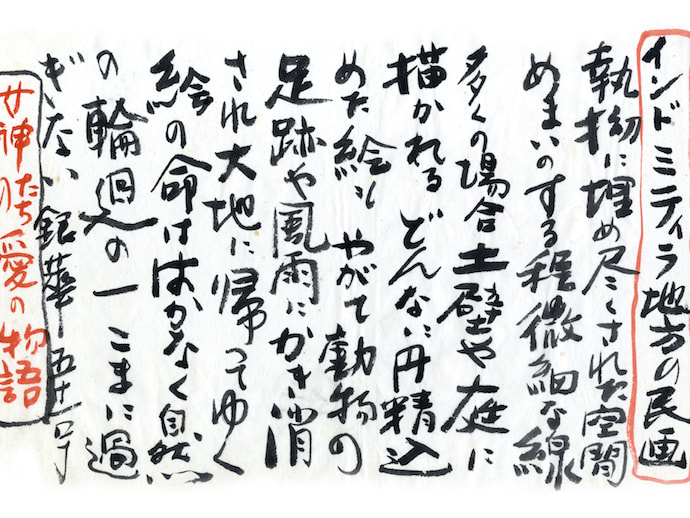 インドミティラ地方の民画
執拗に埋め尽くされた空間
めまいのする程微細な線
多くの場合土壁や庭に
描かれる どんなに丹精込
めた絵も やがて動物の
足跡や風雨にかき消
され大地に帰ってゆく
絵の命ははかなく自然
の輪廻の一こまに過
ぎない 銀華 五十一号
女神たちの愛の物語